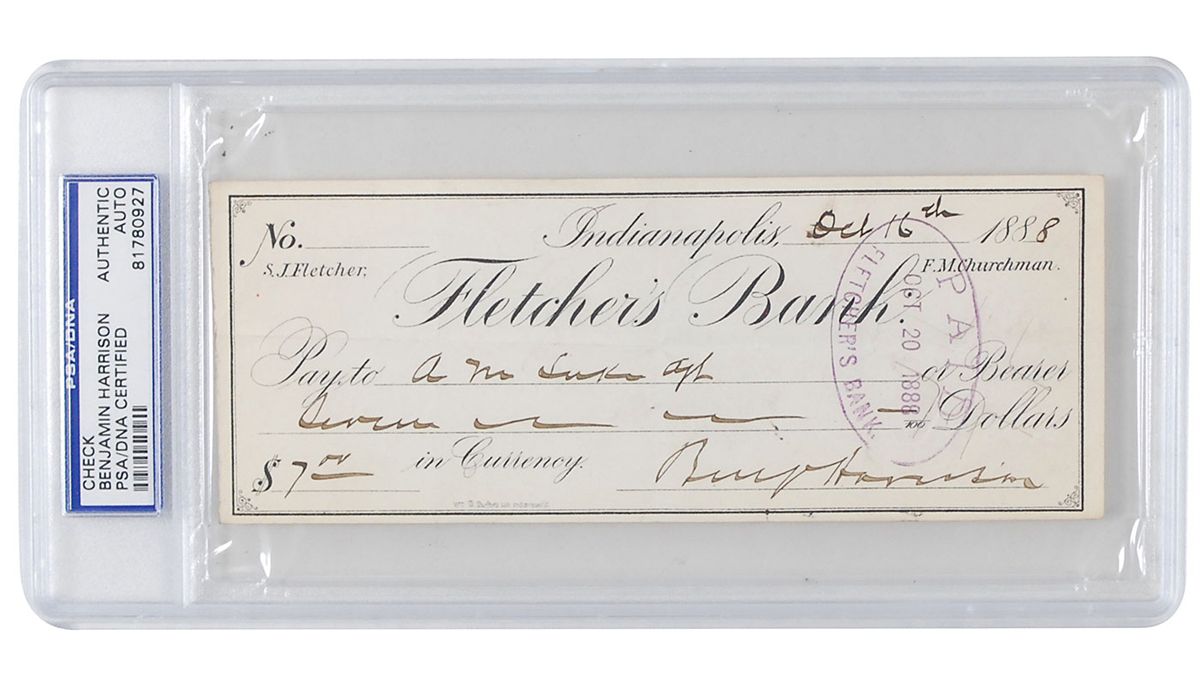 PSA/DNA
CHECK AUTHENTIC
BENJAMIN HARRISON AUTO
PSA/DNA CERTIFIED 81780927
No. Indianapolis, Oct 16th 1888
S.J. Fletcher, F.M. Churchman.
Fletcher's Bank.
Pay to A M or Bearer
Seven 100 Dollars
$7.00 in Currency. Benj Harrison
PAID
OCT 20 1888
FLETCHER'S BANK.